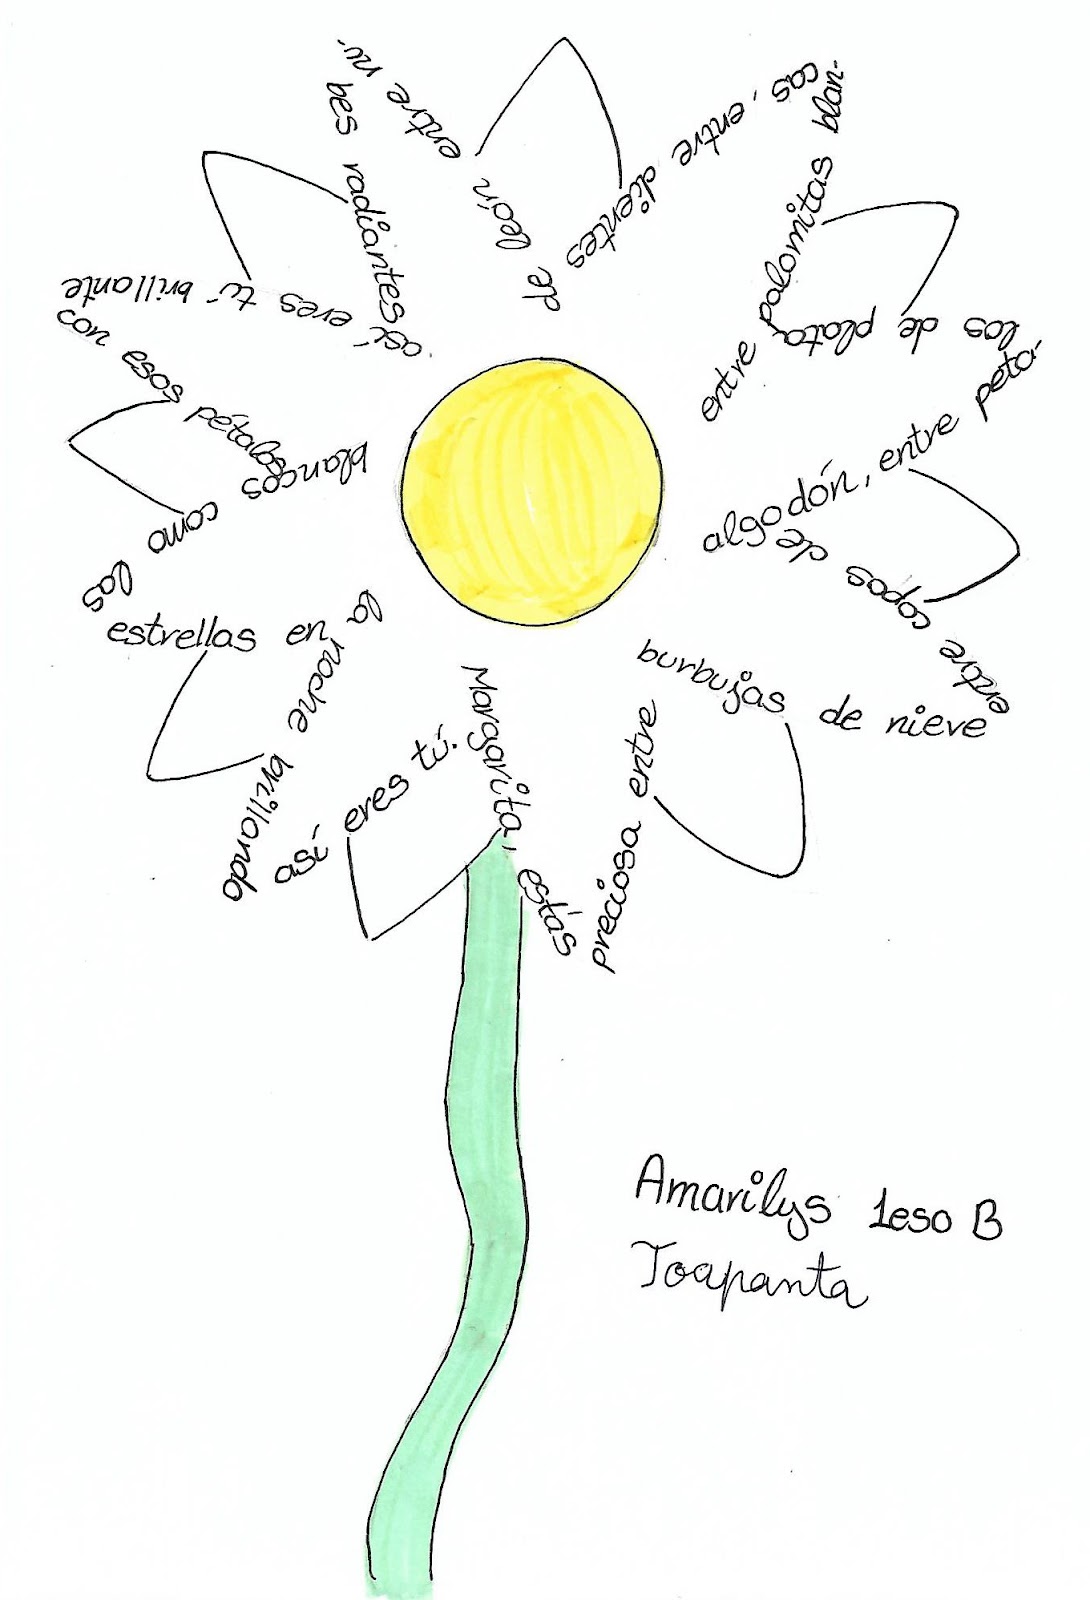 Margarita, estás
preciosa entre
burbujas de nieve
entre copos de
algodón, entre petá-
los de plata,
entre palomitas blan-
cas, entre dientes
de león entre nu-
bes radiantes
así eres tú brillante
con esos pétalos
blancos como las
estrellas en
la noche brillando
así eres tú.
Amarilys 1eso B
Toapanta